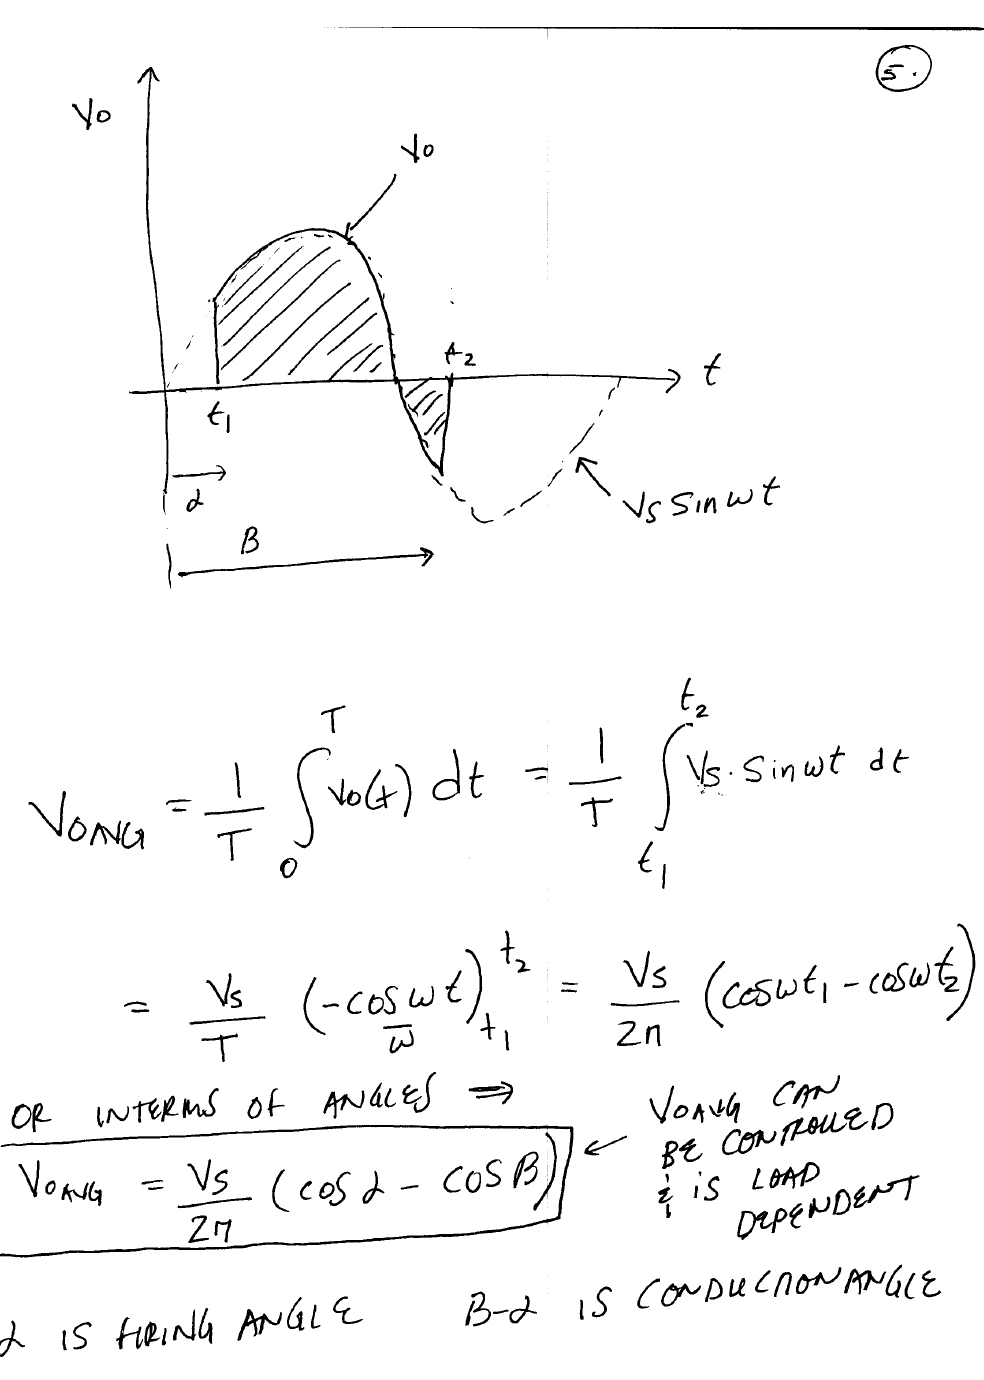 5.
Vo
Vo
t2
t
t1
α
Vs Sin wt
B
VOAVG = 1/T ∫0^T Vo(t) dt = 1/T ∫t1^t2 Vs. Sin ωt dt
= Vs/T (-cos ωt/ω)t1^t2 = Vs/2π (cos ωt1 - cos ωt2)
OR INTERMS OF ANGLES ⇒
VOAVG = Vs/2π (cos α - cos B)
VOAVG CAN
BE CONTROLLED
& IS LOAD
DEPENDENT
α IS FIRING ANGLE B-α IS CONDUCTION ANGLE